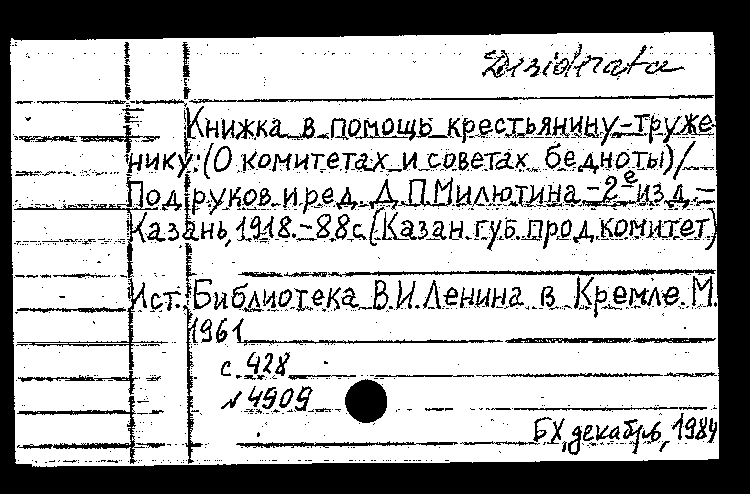 Desiderata
Книжка в помощь крестьянину-труже
нику: (О комитетах и советах бедноты) /
Под руков. и ред. Д.П.Милютина - 2е изд. -
Казань, 1918. - 88с. (Казан. губ. прод. комитет)
Ист.: Библиотека В.И.Ленина в Кремле. М.
1961
с. 428
№ 4909
БХ, декабрь, 1984